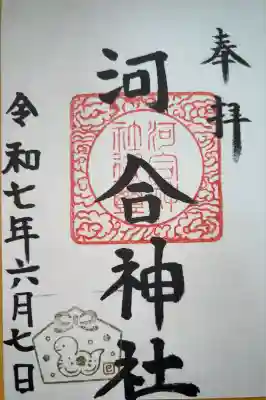 奉拝
河合神社
令和七年六月七日
巳